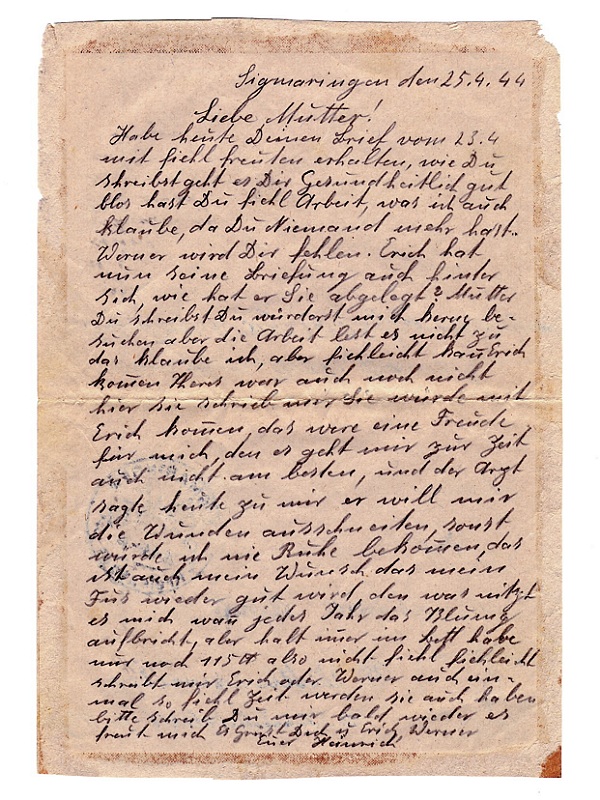 Sigmaringen den 25.4.44
Liebe Mutter!
Habe heute Deinen Brief vom 23.4
mit fiehl freuten erhalten, wie Du
schreibst geht es Dir Gesundheitlich gut
blos hast Du fiehl Arbeit, was ich auch
klaube, da Du Niemand mehr hast.
Werner wird Dir fehlen. Erich hat
nun seine Briefung auch hinter
sich, wie hat er Sie abgelegt? Mutter
Du schreibst Du würdorst mich gerne be-
suchen aber die Arbeit lest es nicht zu
das klaube ich, aber fiehleicht kan Erich
komen Theres war auch noch nicht
hier sie schrieb mir Sie würde mit
Erich komen, das were eine Freude
für mich, den es geht mir zur Zeit
auch nicht am besten, und der Arzt
sagte heute zu mir er will mir
die Wunden ausschneiten, sonst
würde ich nie Ruhe bekomen, das
ist auch mein Wunsch das mein
Fus wieder gut wird, den was nitzt
es mich wan jedes Jahr das
aufbricht, aber halt imer im Bett habe
nur noch 115 ℔ also nicht fiehl fiehleicht
schreibt mir Erich oder Werner auch ein-
mal so fiehl Zeit werden sie auch haben
bitte schreib Du mir bald wieder es
freut mich Es Grüst Dich u Erich, Werner
Euer Heinrich